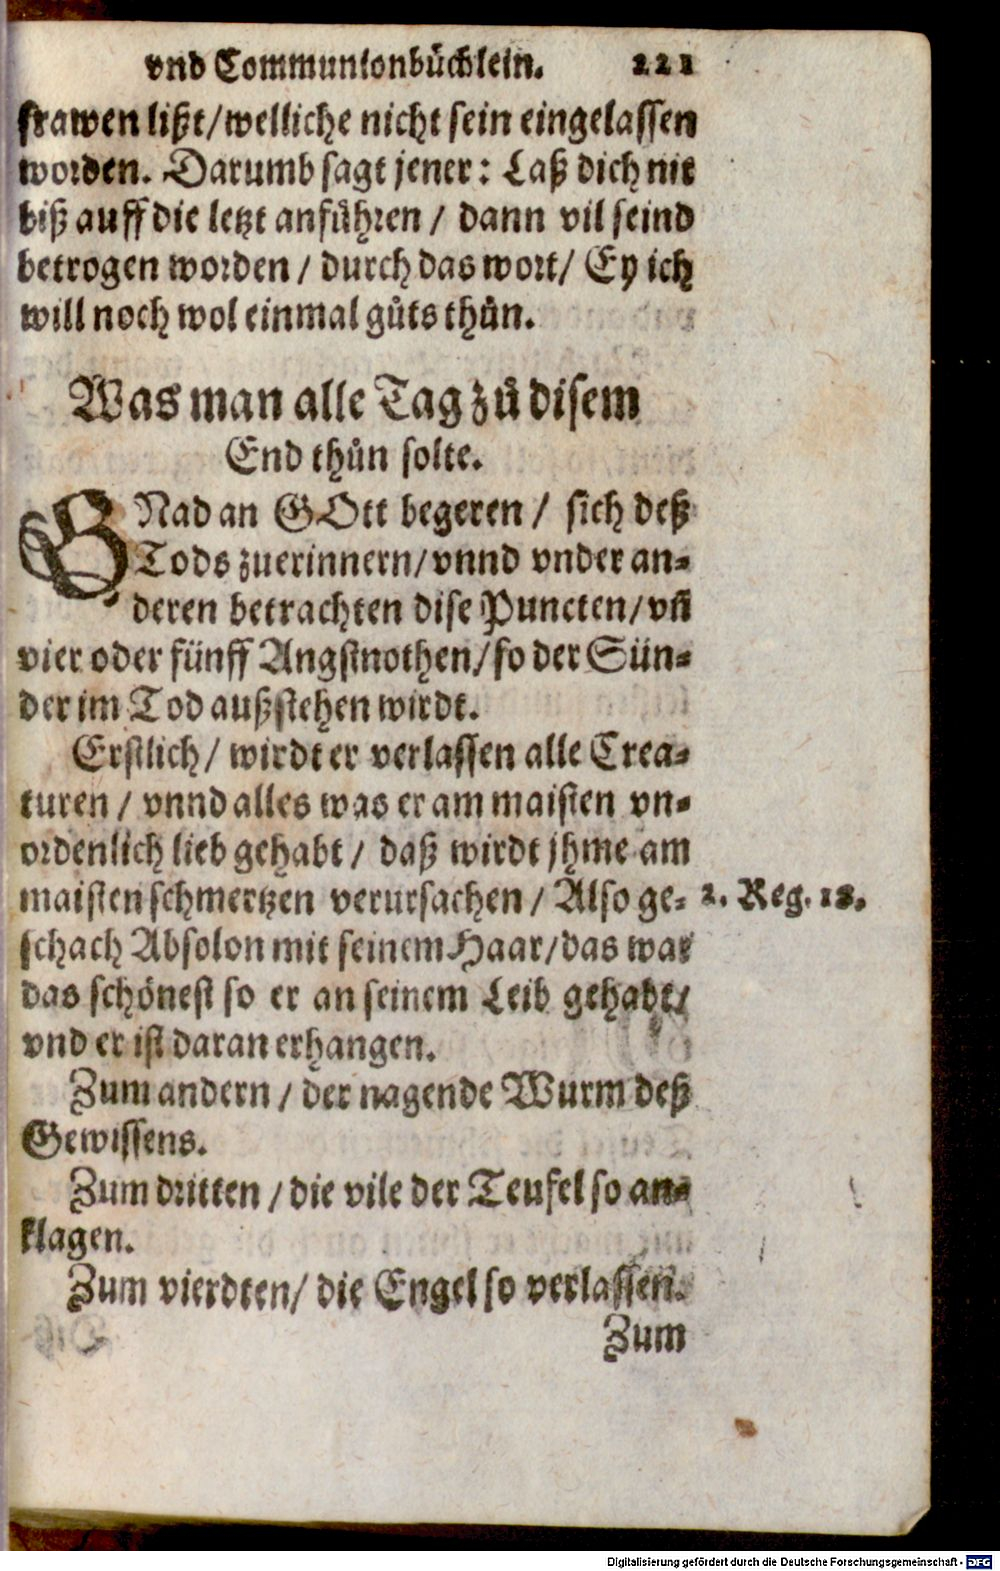 vnd Communionbüchlein. 221
frawen lißt/welliche nicht sein eingelassen
worden. Darumb sagt jener: Laß dich nit
biß auff die letzt anführen / dann vil seind
betrogen worden / durch das wort/ Ey ich
will noch wol einmal gůts thůn.
Was man alle Tag zů disem
End thůn solte.
GNad an GOtt begeren / sich deß
Tods zuerinnern/vnnd vnder an⸗
deren betrachten dise Puncten/vñ
vier oder fünff Angstnothen/so der Sün⸗
der im Tod außstehen wirdt.
Erstlich/ wirdt er verlassen alle Crea⸗
turen / vnnd alles was er am maisten vn⸗
ordenlich lieb gehabt / daß wirdt jhme am
maisten schmertzen verursachen / Also ge⸗ 2. Reg. 18.
schach Absolon mit seinem Haar/das war
das schönest so er an seinem Leib gehabt/
vnd er ist daran erhangen.
Zum andern / der nagende Wurm deß
Gewissens.
Zum dritten / die vile der Teufel so an⸗
klagen.
Zum vierdten/ die Engel so verlassen.
Zum
Digitalisierung gefördert durch die Deutsche Forschungsgemeinschaft - DFG